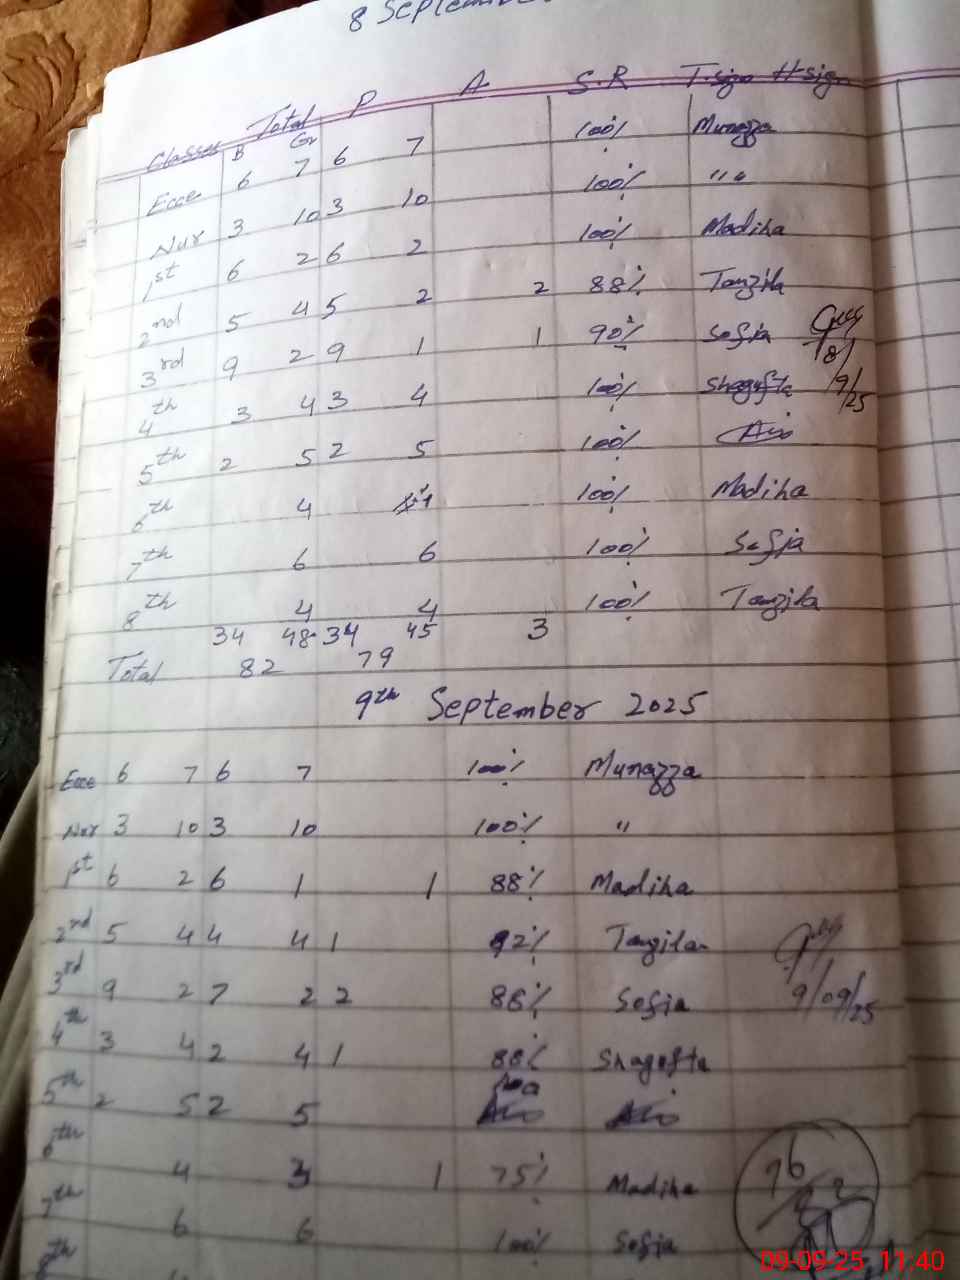 8 September
Classes Total P A S.R T.sign H sign
B G
Ecce 6 7 6 7 100% Munazza
Nur 3 10 3 10 100% "
1st 6 2 6 2 100% Madiha
2nd 5 4 5 2 2 88% Tanzila
3rd 9 2 9 1 1 90% Sofia
8/
4th 3 4 3 4 100% Shagufta 9/25
5th 2 5 2 5 100%
6th 4 4 100% Madiha
7th 6 6 100% Sofia
8th 4 4 100% Tanzila
34 48 34 45 3
Total 82 79
9th September 2025
Ecce 6 7 6 7 100% Munazza
Nur 3 10 3 10 100% "
1st 6 2 6 1 1 88% Madiha
2rd 5 4 4 4 1 92% Tanzila
3rd 9 2 7 2 2 86% Sofia 9/09/25
4th 3 4 2 4 1 88% Shagufta
5th 2 5 2 5
6th 4 3 1 75% Madiha 76
7th 6 6 100% Sofia 82
8th
09-09-25 11:40